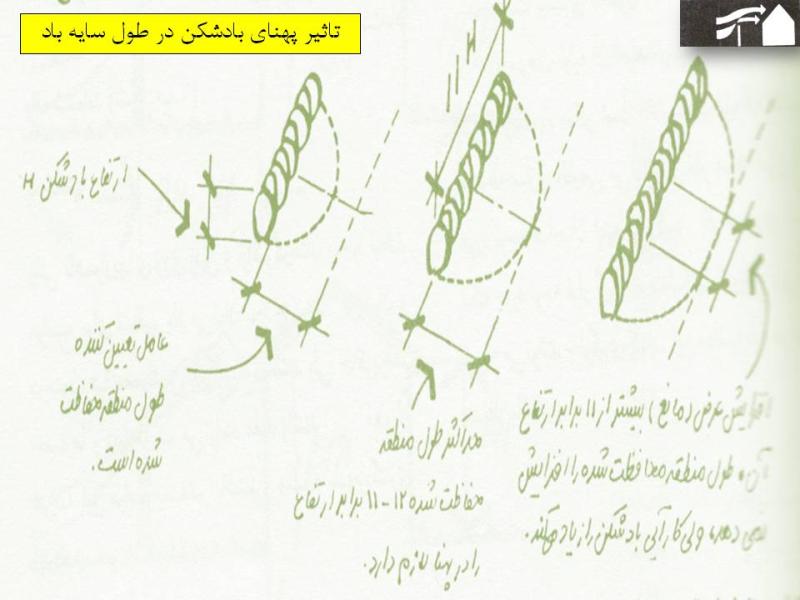 تاثیر پهنای بادشکن در طول سایه باد
11H
ارتفاع بادشکن H
عامل تعیین کننده
طول منطقه حفاظت
شده است.
حداکثر طول منطقه
حفاظت شده ۱۲-۱۱ برابر ارتفاع
را در پهنا لازم دارد.
افزایش عرض (مانع) بیشتر از ۱۱ برابر ارتفاع
آن، طول منطقه محافظت شده را افزایش
نمی دهد، ولی کارآیی بادشکن را زیاد میکند.